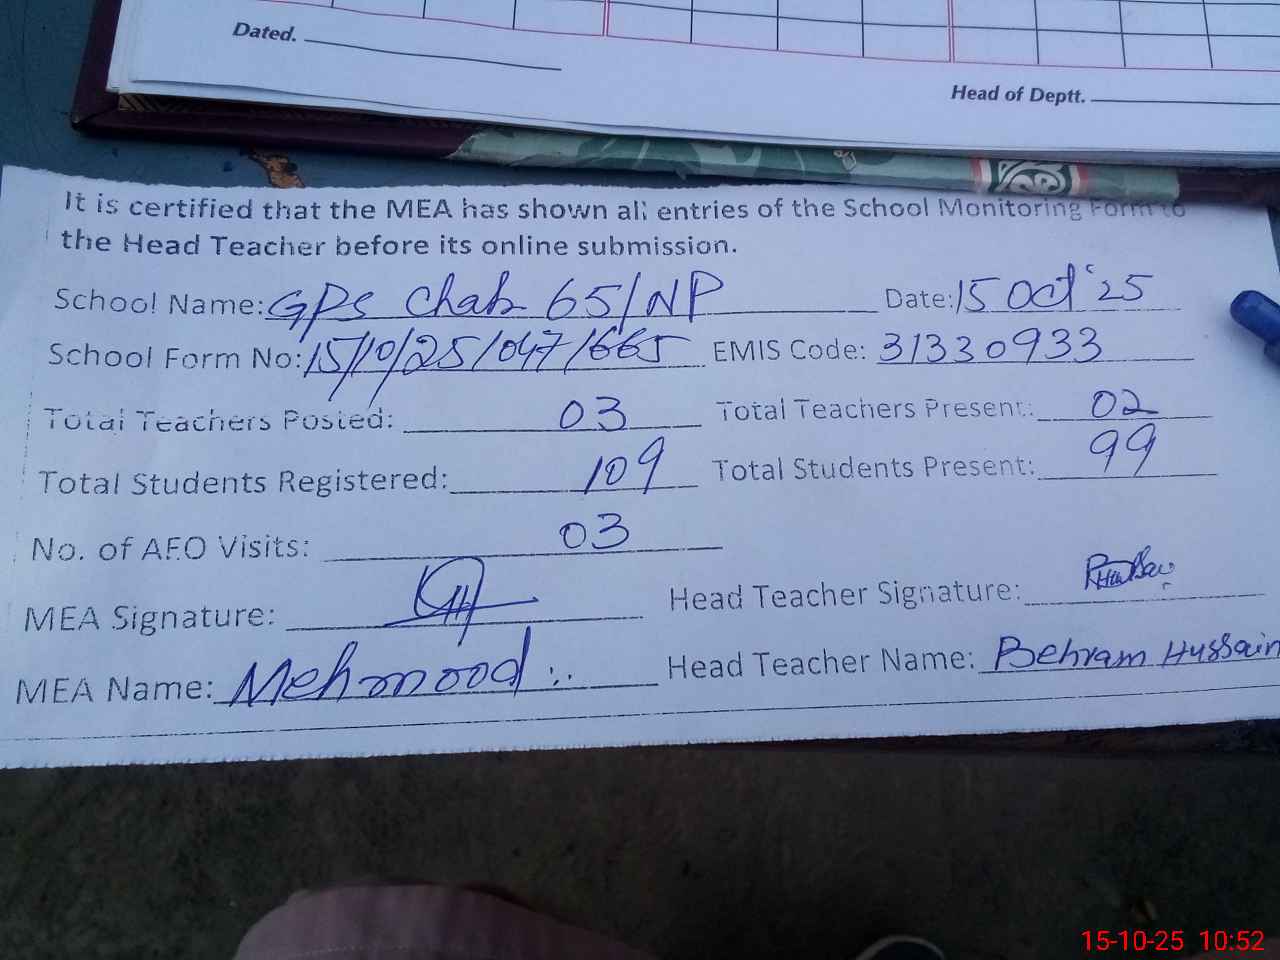 Dated.
Head of Deptt.
It is certified that the MEA has shown all entries of the School Monitoring Form to
the Head Teacher before its online submission.
School Name: GPS Chak 65/NP Date: 15 Oct '25
School Form No: 15/10/25/047/665 EMIS Code: 31330933
Total Teachers Posted: 03 Total Teachers Present: 02
Total Students Registered: 109 Total Students Present: 99
No. of AEO Visits: 03
MEA Signature: Head Teacher Signature:
MEA Name: Mehmood Head Teacher Name: Behram Hussain
15-10-25 10:52